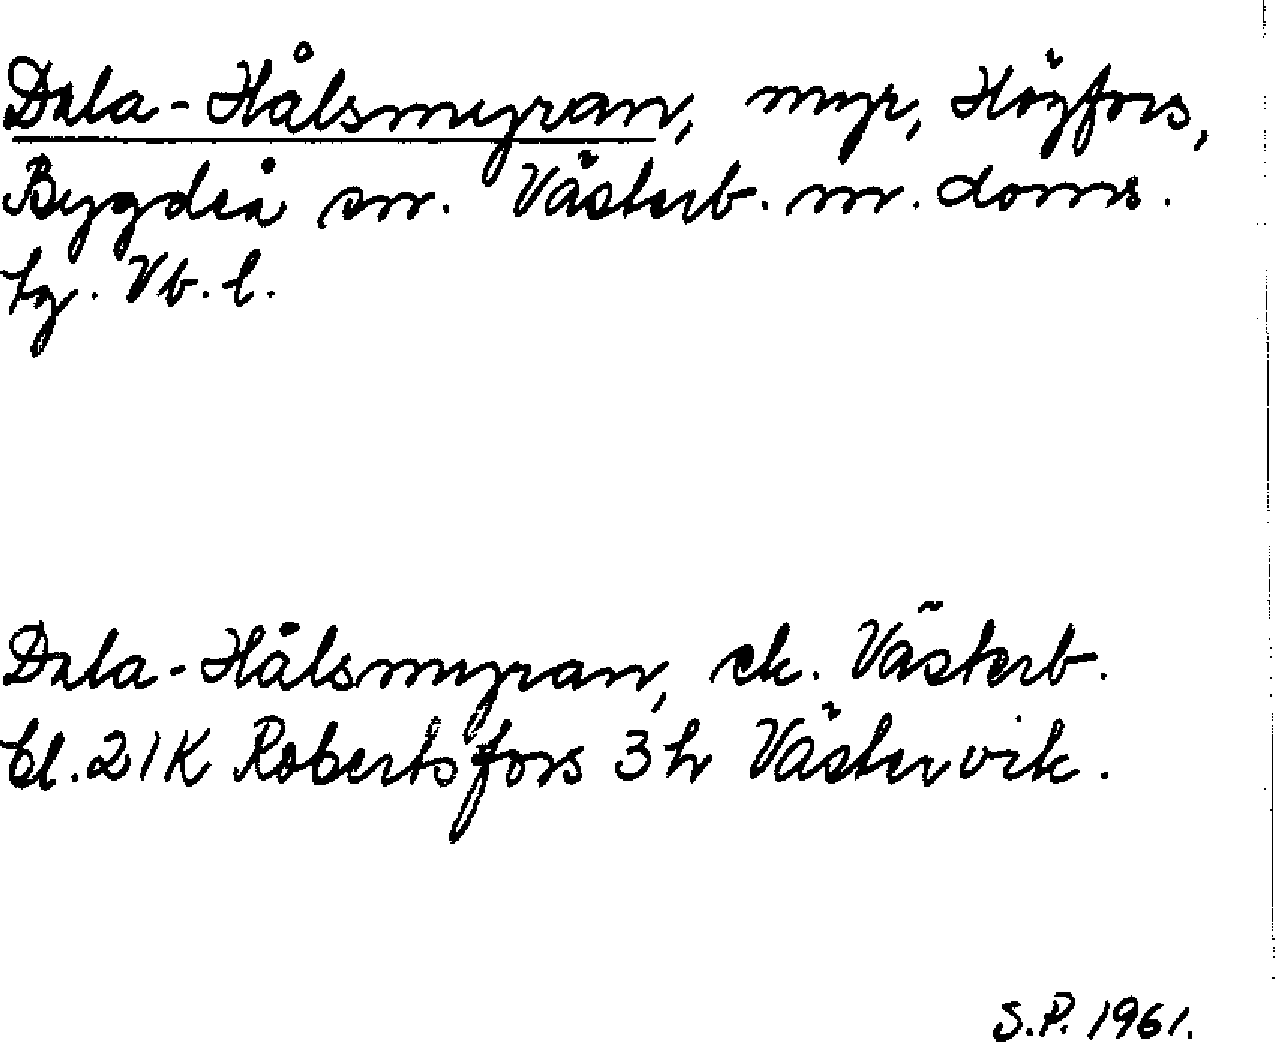 Dala-Hålsmyran, myr, Högfors,
Bygdeå sn. Västerb. m. doms.
tg. Vb. l.
Dala-Hålsmyran, ek. Västerb.
bl. 21K Robertsfors 3h Västervik.
S.P. 1961.